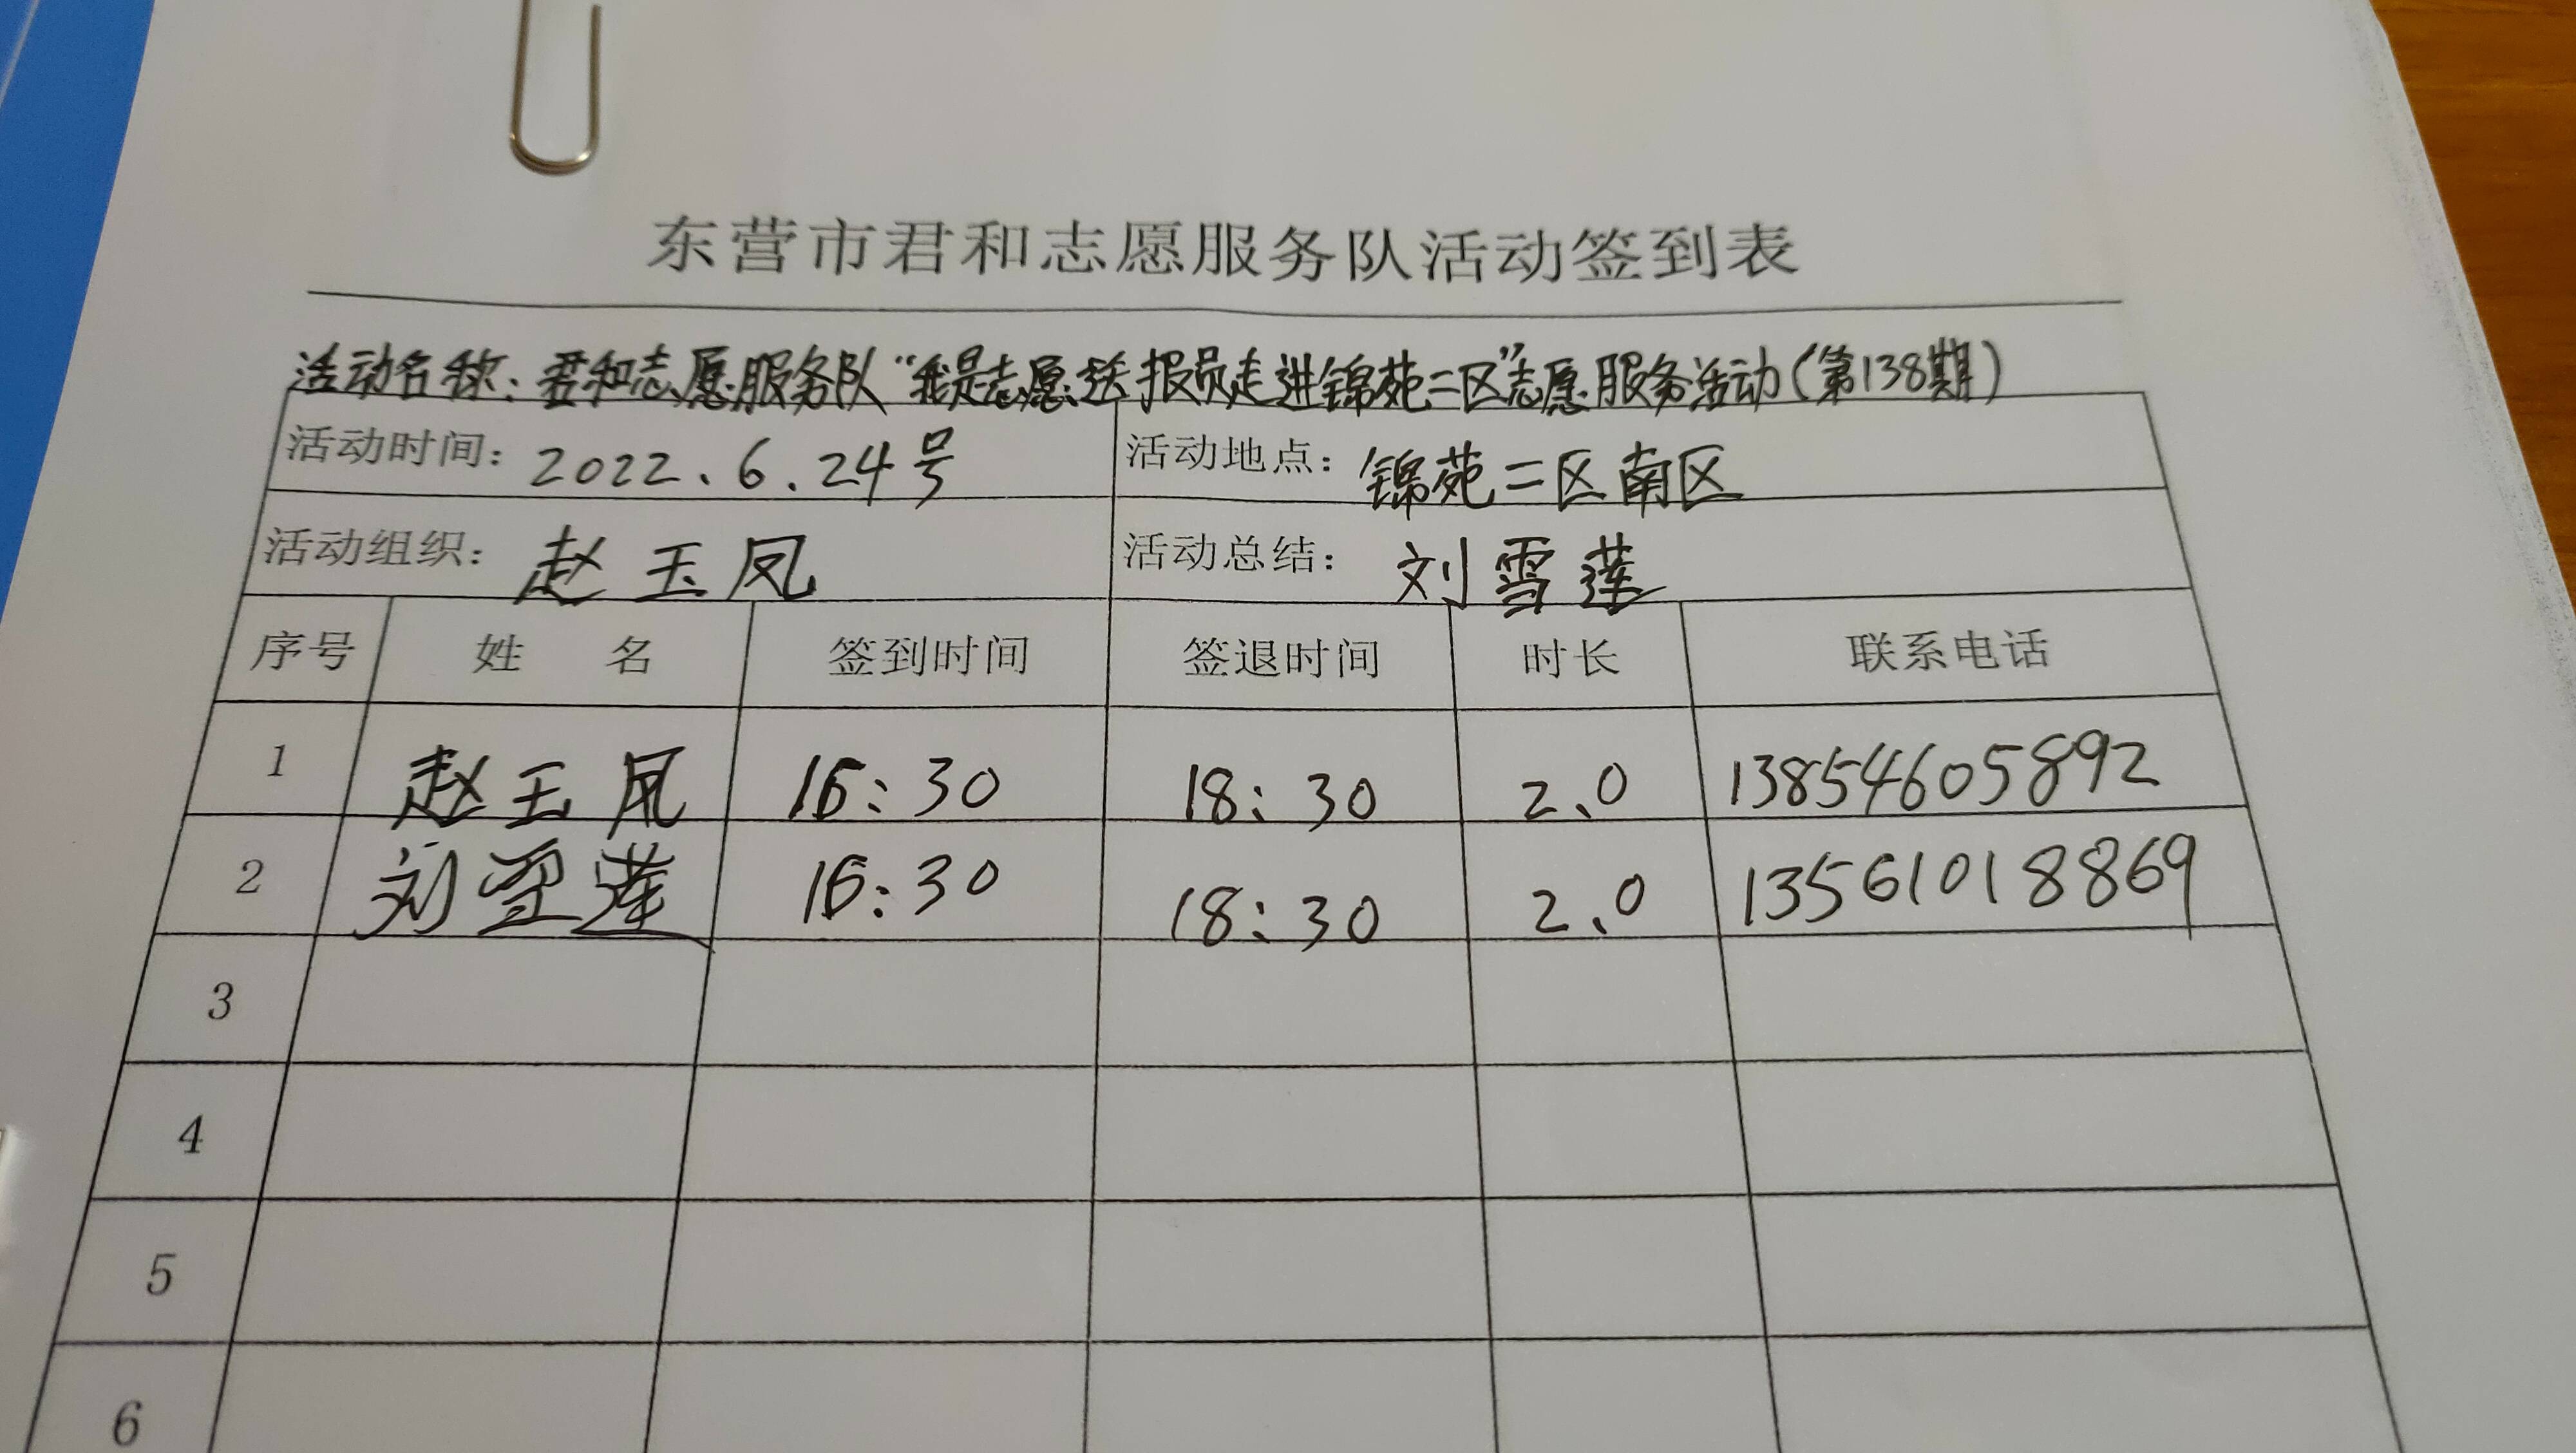 东营市君和志愿服务队活动签到表
活动名称：君和志愿服务队“我是志愿送报员走进锦苑二区”志愿服务活动（第138期）
活动时间：2022.6.24号 活动地点：锦苑二区南区
活动组织：赵玉凤 活动总结：刘雪莲
序号 姓名 签到时间 签退时间 时长 联系电话
1 赵玉凤 16:30 18:30 2.0 13854605892
2 刘雪莲 16:30 18:30 2.0 13561018869
3
4
5
6